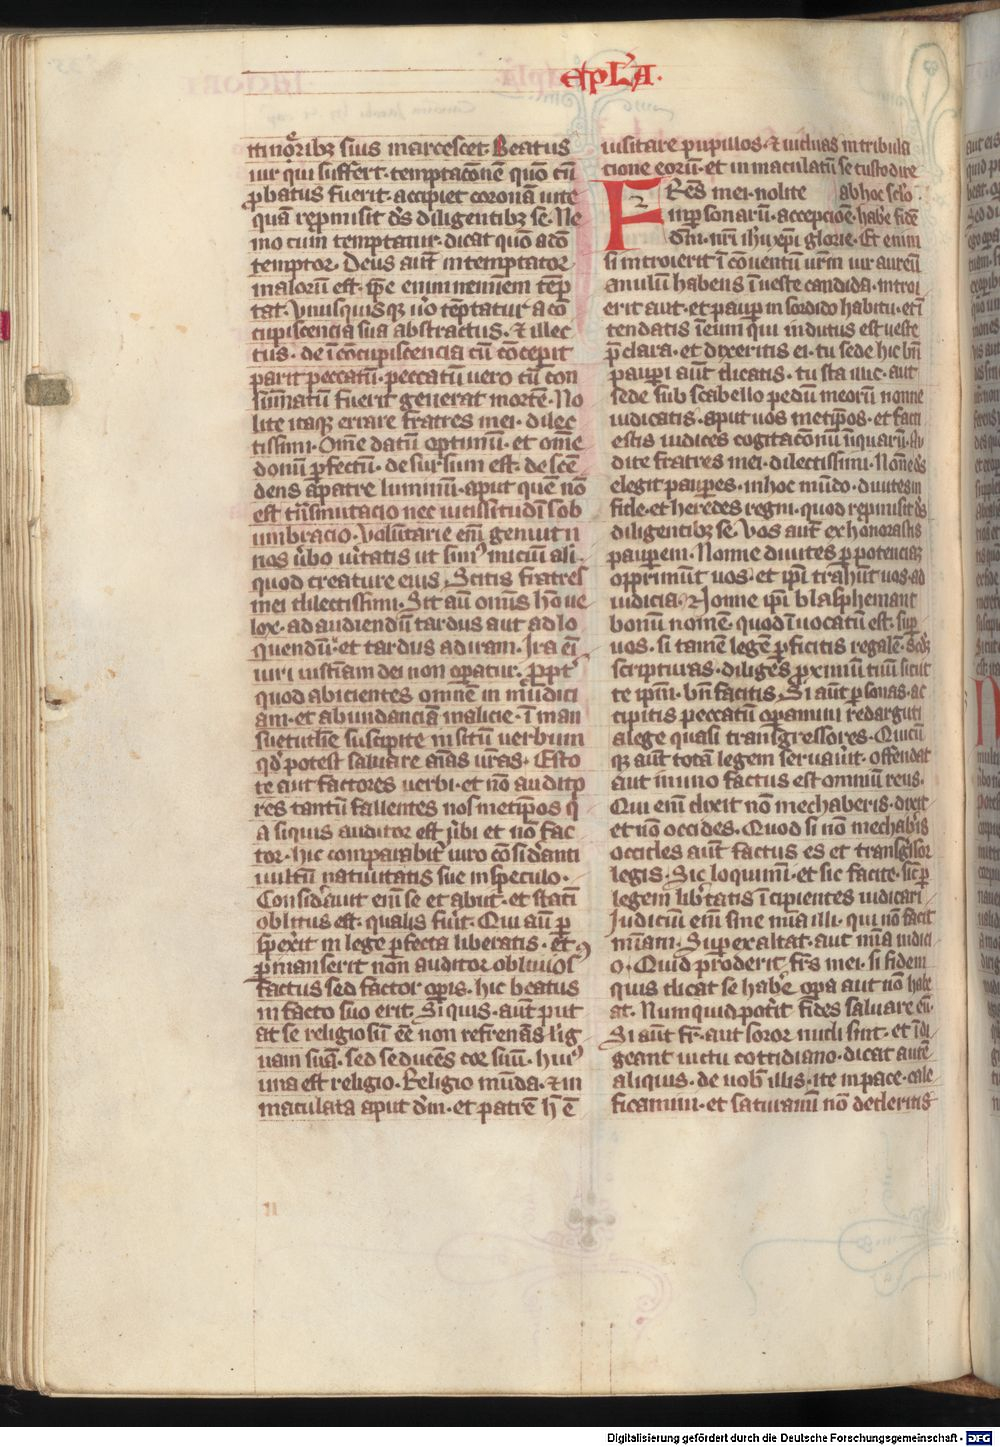 epl'a.
itinọ̈ribꝫ suis marcescet. Beatus
uir qui suffert. temptac̄onē quo cū
ꝓbatus fuerit. accipiet coronam uite
quā repmisit d̄s diligentibꝫ se. Ne
mo cum temptatur. dicat quo a do
temptor. Deus aut̄ intemptator
malorū est. ip̄e enim neminem tēp
tat. Vnusquisqꝫ u̓o tēptatur a cō
cupiscencia sua abstractus. ⁊ illec
tus. de ī cōcupiscencia cū cōcepit
parit peccatū. peccatū vero cū con
sūmatū fuerit generat mortē. No
lite itaqꝫ errare fratres mei. dilec
tissimi. Om̄e datū optimū. et om̄e
donū ꝑfectū. desursum est. descē
dens a patre luminū. aput quē nō
est tn̄smutacio nec uicissitudīs ob
umbracio. Voluntarie eni genuit n
nos u̓bo u̓itatis ut simꝰ iniciū ali
quod creature eius. Scitis fratres
mei dilectissimi. Sit aū omīs hō ue
lox. ad audiendū tardus aut ad lo
quendū. et tardus ad iram. Ira eī
uiri iusticiam dei non oꝑatur. ꝓpt̓
quod abicientes omnē in mūdici
am. et abundanciā malicie. ī man
suetudīe suscipite insitū uerbum
qd̓ potest saluare aīas ur̄as. Esto
te aut factores uerbi. et nō audito
res tantū fallentes uosmetip̄os q
a siquis auditor est u̓bi et nō fac
tor. hic comparabit̓ uiro cōsid̓anti
uultū natiuitatis sue in speculo.
Consid̓auit eni se et abiit. et statī
oblitus est. qualis fuit. Qui aū ꝑ
spex̓it in lege ꝑfecta liberatis. et
ꝑmanserit non auditor obliuios̓
factus sed factor oꝑis. hic beatus
in facto suo erit. Siquis. aut̄ put
at se religiosū eē non refrenās lig
uam suā. sed seducēs cor suū. huiꝰ
uana est religio. Religio mūda. ⁊ in
maculata aput dm̄. et patrē h̄ ē
uisitare pupillos. ⁊ uiduas in tribula
cione eorū. et inmaculatū se custodire
FRēs mei. nolite ab hoc sclo.
2 in ꝑsonarū. accepcioē. hab̓e fidē
dn̄i. nr̄i ih̓u xp̄i glorie. Et enim
si introierit ī cōuentū ur̄m uir aureū
anulū habens ī ueste candida. introi
erit aut. et paup in sordido habitu. et ī
tendatis īeum qui indutus est ueste
p̄clara. et dixeritis ei. tu sede hic bn̄
pauꝑi aut̄ dicatis. tu sta illic. aut
sede sub scabello pedū meorū nonne
iudicatis. aput uos metip̄os. et facti
estis iudices cogitac̄onū īiquarū. Au
dite fratres mei. dilectissimi. Nōne d̄s
elegit pauꝑes. in hoc mūdo. diuites in
fide. et heredes regni. quod repmisit d̄s
diligentibꝫ se. Vos aut̄ exhonorastis
pauꝑem. Nonne diuites ꝑ potenciaꝫ
opprimūt uos. et ip̄i trahūt uos. ad
iudicia. Nonne ip̄i blasphemant
bonū nomē. quod īuocatū est. sup̄
uos. si tamen legē ꝑficitis regalē. sc̄dꝫ
scripturas. diliges proximū tuū sicut
te ip̄m. bn̄ facitis. Si aut̄ ꝑsonas. ac
cipitis peccatū oꝑamini redarguti
a lege quasi transgressores. Quicū
qꝫ aut̄ totā legem seruauit. offendat
aut in uno factus est omniū reus.
Qui eni dixit nō mechaberis. dixit
et nō occides. Quod si nō mechab̓is
occides aut̄ factus es et transg̓ssor
legis. Sic loquimī. et sic facite. sic̄ ꝑ
legem lib̓tatis īcipientes iudicari
Iudiciū eni sine mīa illi. qui nō facit
mīam. Sup exaltat. aut mīa iudici
o. Quid proderit. frs mei. si fidem
quis dicat se hab̓e oꝑa aut nō habe
at. Numquid pot̓it fides saluare eū.
Si aut̄ fr̄. aut soror nudi sint. et īdi
geant uictu cottidiano. dicat autē
aliquis. de uob̄ illis. ite in pace. cale
ficamini. et saturaminī nō dederitis
Digitalisierung gefördert durch die Deutsche Forschungsgemeinschaft - DFG